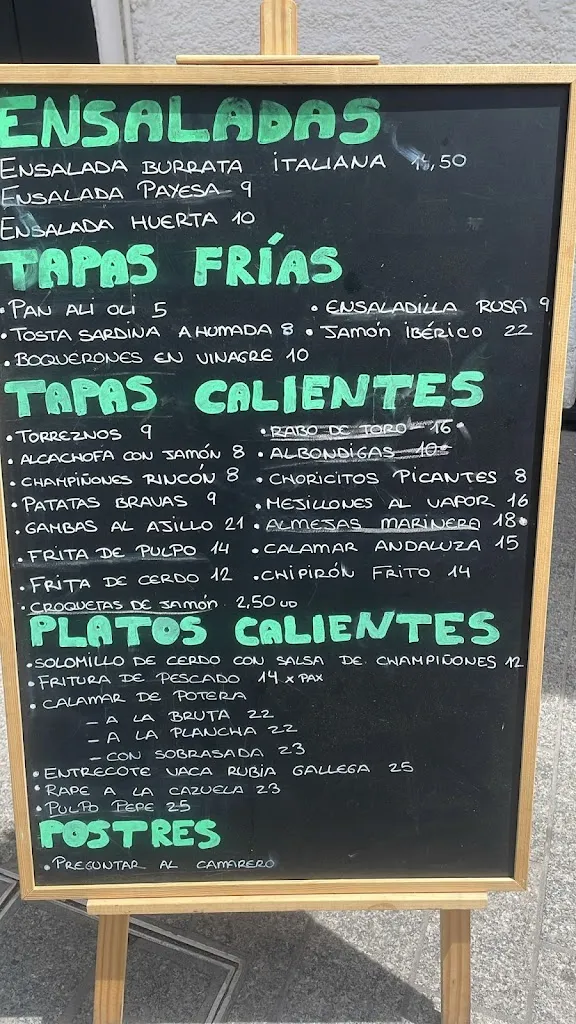 ENSALADAS
ENSALADA BURRATA ITALIANA ,50
ENSALADA PAYESA 9
ENSALADA HUERTA 10
TAPAS FRÍAS
• PAN ALI OLI 5
• TOSTA SARDINA AHUMADA 8
• BOQUERONES EN VINAGRE 10
• ENSALADILLA RUSA 9
• JAMÓN IBÉRICO 22
TAPAS CALIENTES
• TORREZNOS 9
• ALCACHOFA CON JAMÓN 8
• CHAMPIÑONES RINCÓN 8
• PATATAS BRAVAS 9
• GAMBAS AL AJILLO 21
• FRITA DE PULPO 14
• FRITA DE CERDO 12
• CROQUETAS DE JAMÓN 2,50 UD
• RABO DE TORO 16
• ALBONDIGAS 10
• CHORICITOS PICANTES 8
• MEJILLONES AL VAPOR 16
• ALMEJAS MARINERA 18
• CALAMAR ANDALUZA 15
• CHIPIRÓN FRITO 14
PLATOS CALIENTES
• SOLOMILLO DE CERDO CON SALSA DE CHAMPIÑONES 12
• FRITURA DE PESCADO 14 x PAX
• CALAMAR DE POTERA
– A LA BRUTA 22
– A LA PLANCHA 22
– CON SOBRASADA 23
• ENTRECOTE VACA RUBIA GALLEGA 25
• RAPE A LA CAZUELA 23
• PULPO PEPE 25
POSTRES
• PREGUNTAR AL CAMARERO